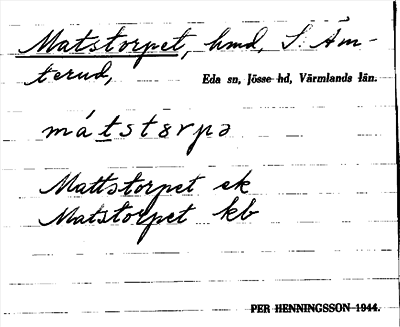 Matstorpet, hmd, S. Äm-
terud,
Eda sn, Jösse hd, Värmlands län.
mátstɵrpə
Mattstorpet ek
Matstorpet kb
PER HENNINGSSON 1944.